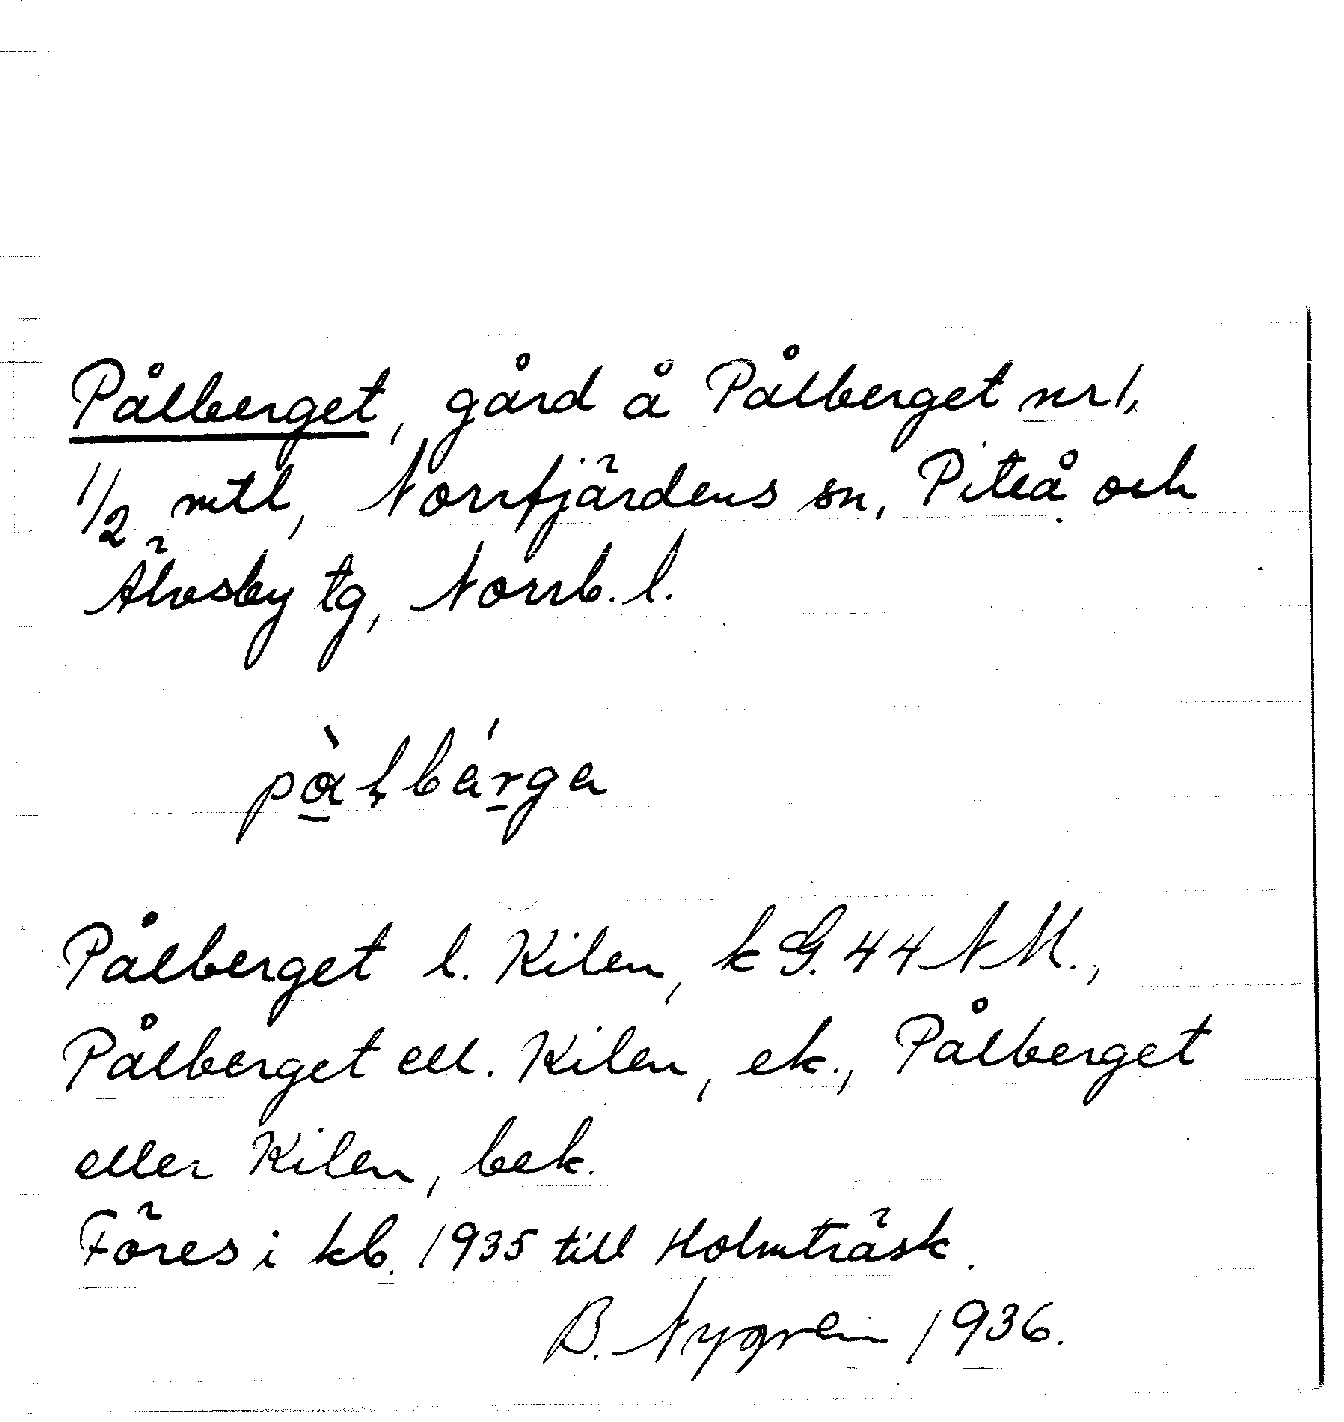 Pålberget, gård å Pålberget nr 1,
1/2 mtl, Norrfjärdens sn, Piteå och
Älvsby tg, Norrb. l.
pɑ̠̀ɫbár̠ga
Pålberget l. Kilen, k G. 44 NM.,
Pålberget ell. Kilen, ek., Pålberget
eller Kilen, bek.
Föres i kb. 1935 till Holmträsk.
B. Nygren 1936.